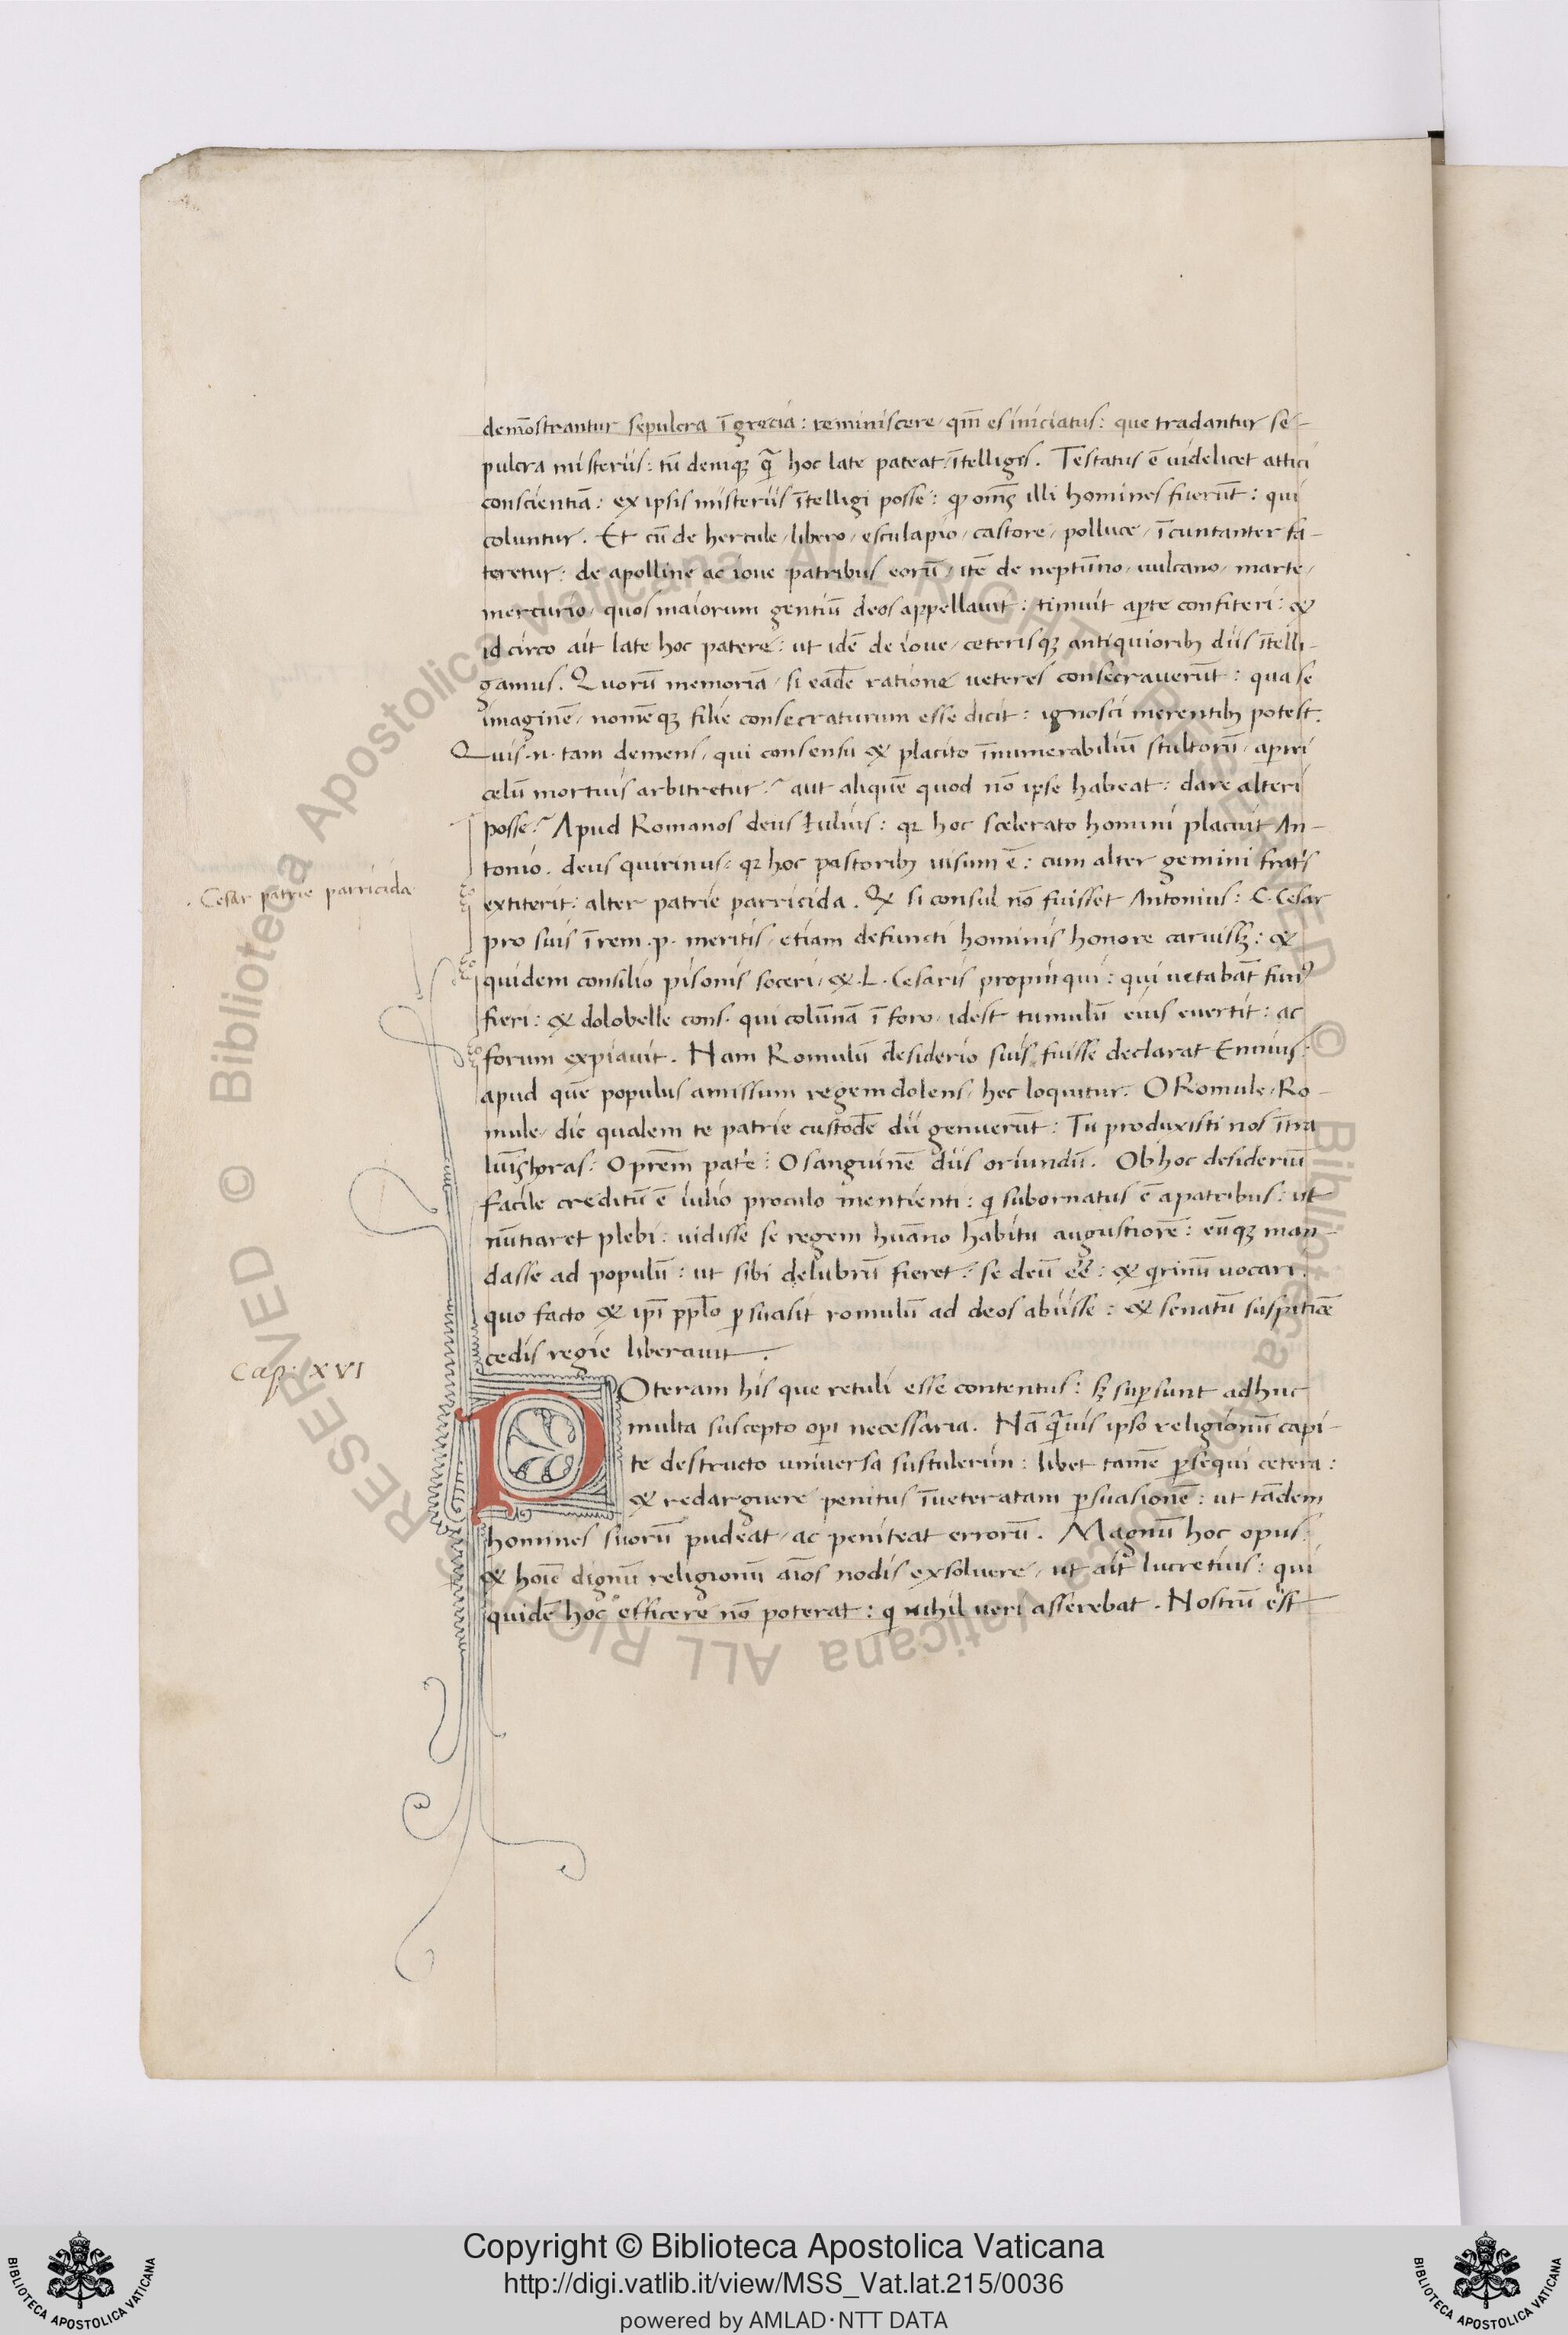 demo᷒strantur sepulcra ī grecia: reminiscere, qm̄ es iniciatus: que tradantur se-
pulcra misteriis: tū deniqꝫ quā hoc late pateat, ītelligis. Testatus ē uidelicet attici
conscientiā: ex ipsis misteriis ītelligi posse: ꝙ om̄s illi homines fuerūt: qui
coluntur. Et cū de hercule, libero, esculapio, castore, polluce, īcuntanter fa-
teretur: de apolline ac ioue patribus eorū, itē de neptūno, uulcano, marte,
mercurio, quos maiorum gentiū deos appellauit: timuit aꝑte confiteri: &
id circo ait late hoc patere: ut idē de ioue, ceterisqꝫ antiquioribꝫ diis ītelli-
gamus. Quorū memoriā, si eadē ratione ueteres consecrauerūt: qua se
imaginē, nomēqꝫ filie consecraturum esse dicit: ignosci merentibꝫ potest.
Quis .n. tam demens, qui consensu & placito īnumerabiliū stultorū, aperiri
celū mortuis arbitretur? aut aliquē quod nō ipse habeat: dare alteri
posse? Apud Romanos deus Iulius: qꝛ hoc scelerato homini placuit An-
tonio. deus quirinus: qꝛ hoc pastoribꝫ uisum ē: cum alter gemini frat̄s
extiterit: alter patrie parricida. Qꝫ si consul nō fuisset Antonius: C. Cesar
pro suis ī rem .p. meritis, etiam defuncti hominis honore caruisꝫ: &
quidem consilio pisonis soceri, & .L. Cesaris propinqui: qui uetabāt fun᷒
fieri: & dolobelle cons. qui colūnā ī foro, idest tumulū eius euertit: ac
forum expiauit. Nam Romulū desiderio suis fuisse declarat Ennius:
apud quē populus amissum regem dolens, hec loquitur. O Romule, Ro-
mule, dic qualem te patrie custodē dii genuerūt: Tu produxisti nos ītra
lūis horas: O prēm pat̄e: O sanguinē diis oriundū. Ob hoc desideriū
facile creditū ē iulio proculo mentienti: qͥ subornatus ē a patribus: ut
nūtiaret plebi: uidisse se regem huāno habitu augustiorē: eūqꝫ man-
dasse ad populū: ut sibi delubrū fieret: se deū eē: & qͥrinū uocari.
quo facto & ip̄i pp̄lo ꝑsuasit romulū ad deos abiisse: & senatū suspitiōe
cedis regie liberauit.
. Cesar patrie parricida.
Cap. XVI
POteram his que retuli esse contentus: sꝫ suꝑsunt adhuc
multa suscepto oꝑi necessaria. Nā quāuis ipso religionū capi-
te destructo uniuersa sustulerim: libet tamē ꝑsequi cetera:
& redarguere penitus īueteratam ꝑsuasionē: ut tādem
homines suorū pudeat, ac peniteat errorū. Magnū hoc opus:
& hoīe dignū religionū aīos nodis exsoluere, ut ait lucretius: qui
quidē hoc efficere nō poterat: qͥ nihil ueri asserebat. Nostrū ēst
Copyright © Biblioteca Apostolica Vaticana
http://digi.vatlib.it/view/MSS_Vat.lat.215/0036
powered by AMLAD·NTT DATA
BIBLIOTECA APOSTOLICA VATICANA
BIBLIOTECA APOSTOLICA VATICANA
© Biblioteca Apostolica Vaticana ALL RIGHTS RESERVED © Biblioteca Apostolica Vaticana ALL RIGHTS RESERVED